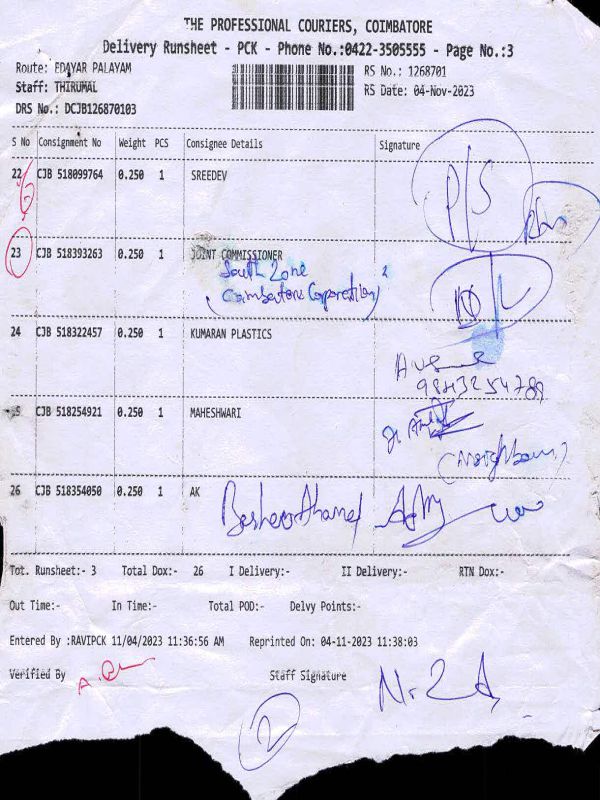 THE PROFESSIONAL COURIERS, COIMBATORE
Delivery Runsheet - PCK - Phone No.:0422-3505555 - Page No.:3
Route: EDAYAR PALAYAM RS No.: 1268701
Staff: THIRUMAL RS Date: 04-Nov-2023
DRS No.: DCJB126870103
S No Consignment No Weight PCS Consignee Details Signature
22 CJB 518099764 0.250 1 SREEDEV P/S
23 CJB 518393263 0.250 1 JOINT COMMISSIONER
South Zone
(Coimbatore Corporation)
24 CJB 518322457 0.250 1 KUMARAN PLASTICS
9843254789
CJB 518254921 0.250 1 MAHESHWARI
(Neighbour)
26 CJB 518354050 0.250 1 AK
Tot. Runsheet:- 3 Total Dox:- 26 I Delivery:- II Delivery:- RTN Dox:-
Out Time:- In Time:- Total POD:- Delvy Points:-
Entered By :RAVIPCK 11/04/2023 11:36:56 AM Reprinted On: 04-11-2023 11:38:03
Verified By Staff Signature
2